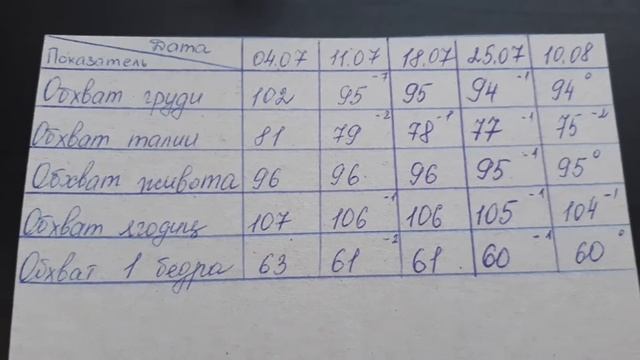 Дата
Показатель 04.07 11.07 18.07 25.07 10.08
Обхват груди 102 95⁻⁷ 95 94⁻¹ 94⁰
Обхват талии 81 79⁻² 78⁻¹ 77⁻¹ 75⁻²
Обхват живота 96 96 96 95⁻¹ 95⁰
Обхват ягодиц 107 106⁻¹ 106 105⁻¹ 104⁻¹
Обхват 1 бедра 63 61⁻² 61 60⁻¹ 60⁰